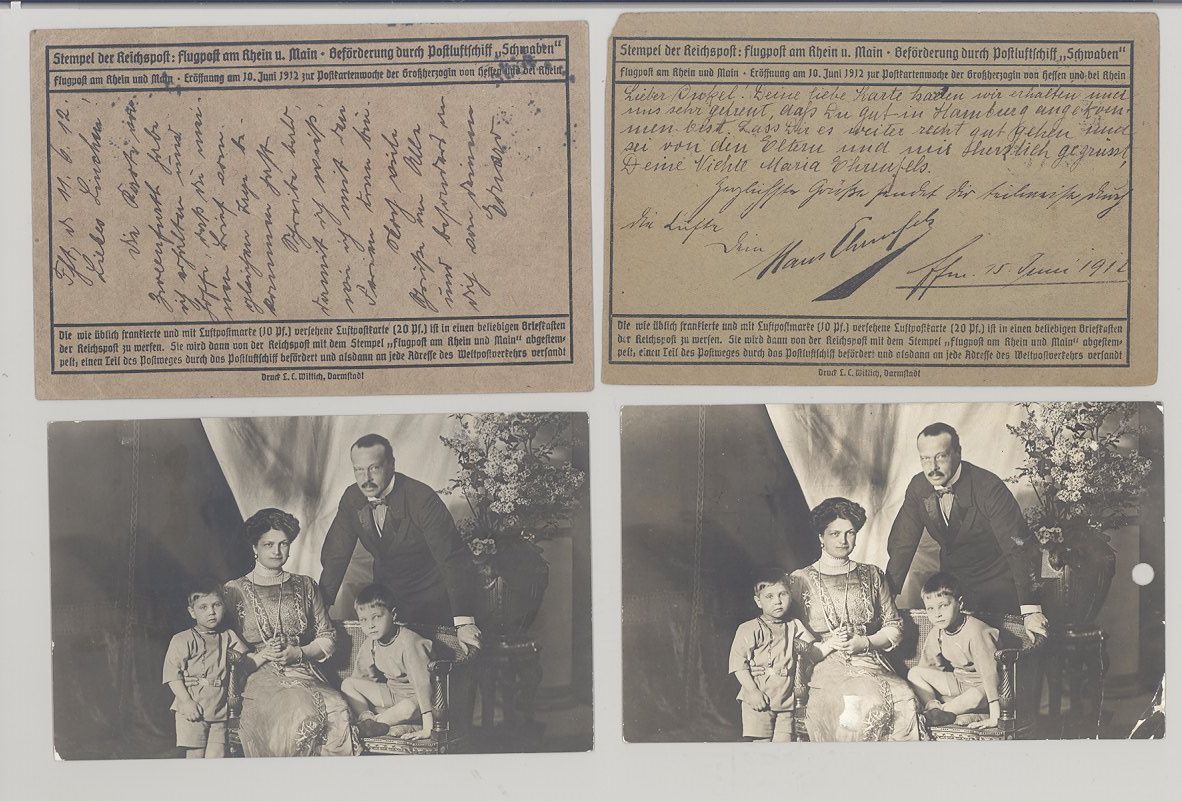 Stempel der Reichspost: Flugpost am Rhein u. Main · Beförderung durch Postluftschiff „Schwaben“
Flugpost am Rhein und Main · Eröffnung am 10. Juni 1912 zur Postkartenwoche der Großherzogin von Hessen und bei Rhein
d. 11. 6. 12.
Liebes Linchen!
Die Karte
habe
ich erhalten und
hoffe, daß du mei-
nen Brief am
gleichen Tage be-
kommen hast.
Schreibe bald,
damit ich weiß,
ich mit den
Noch viele
Grüße an Alle
und besonders an
dich von deinem
Die wie üblich frankierte und mit Luftpostmarke (10 Pf.) versehene Luftpostkarte (20 Pf.) ist in einen beliebigen Briefkasten
der Reichspost zu werfen. Sie wird dann von der Reichspost mit dem Stempel „Flugpost am Rhein und Main“ abgestem-
pelt, einen Teil des Postweges durch das Postluftschiff befördert und alsdann an jede Adresse des Weltpostverkehrs versandt
Druck L. C. Wittich, Darmstadt
Stempel der Reichspost: Flugpost am Rhein u. Main · Beförderung durch Postluftschiff „Schwaben“
Flugpost am Rhein und Main · Eröffnung am 10. Juni 1912 zur Postkartenwoche der Großherzogin von Hessen und bei Rhein
Lieber Deine liebe Karte haben wir erhalten und
uns sehr gefreut, daß Du gut in Hamburg angekom-
men bist. Lass Dir es weiter recht gut gehen und
sei von den Eltern und mir herzlich gegrüsst
Deine Maria Ehrenfels.
Herzlichste Grüße sendet dir teilweise durch
die Lüfte
Dein
Hans Ehrenfels
Ffm. 15 Juni 1912
Die wie üblich frankierte und mit Luftpostmarke (10 Pf.) versehene Luftpostkarte (20 Pf.) ist in einen beliebigen Briefkasten
der Reichspost zu werfen. Sie wird dann von der Reichspost mit dem Stempel „Flugpost am Rhein und Main“ abgestem-
pelt, einen Teil des Postweges durch das Postluftschiff befördert und alsdann an jede Adresse des Weltpostverkehrs versandt
Druck L. C. Wittich, Darmstadt